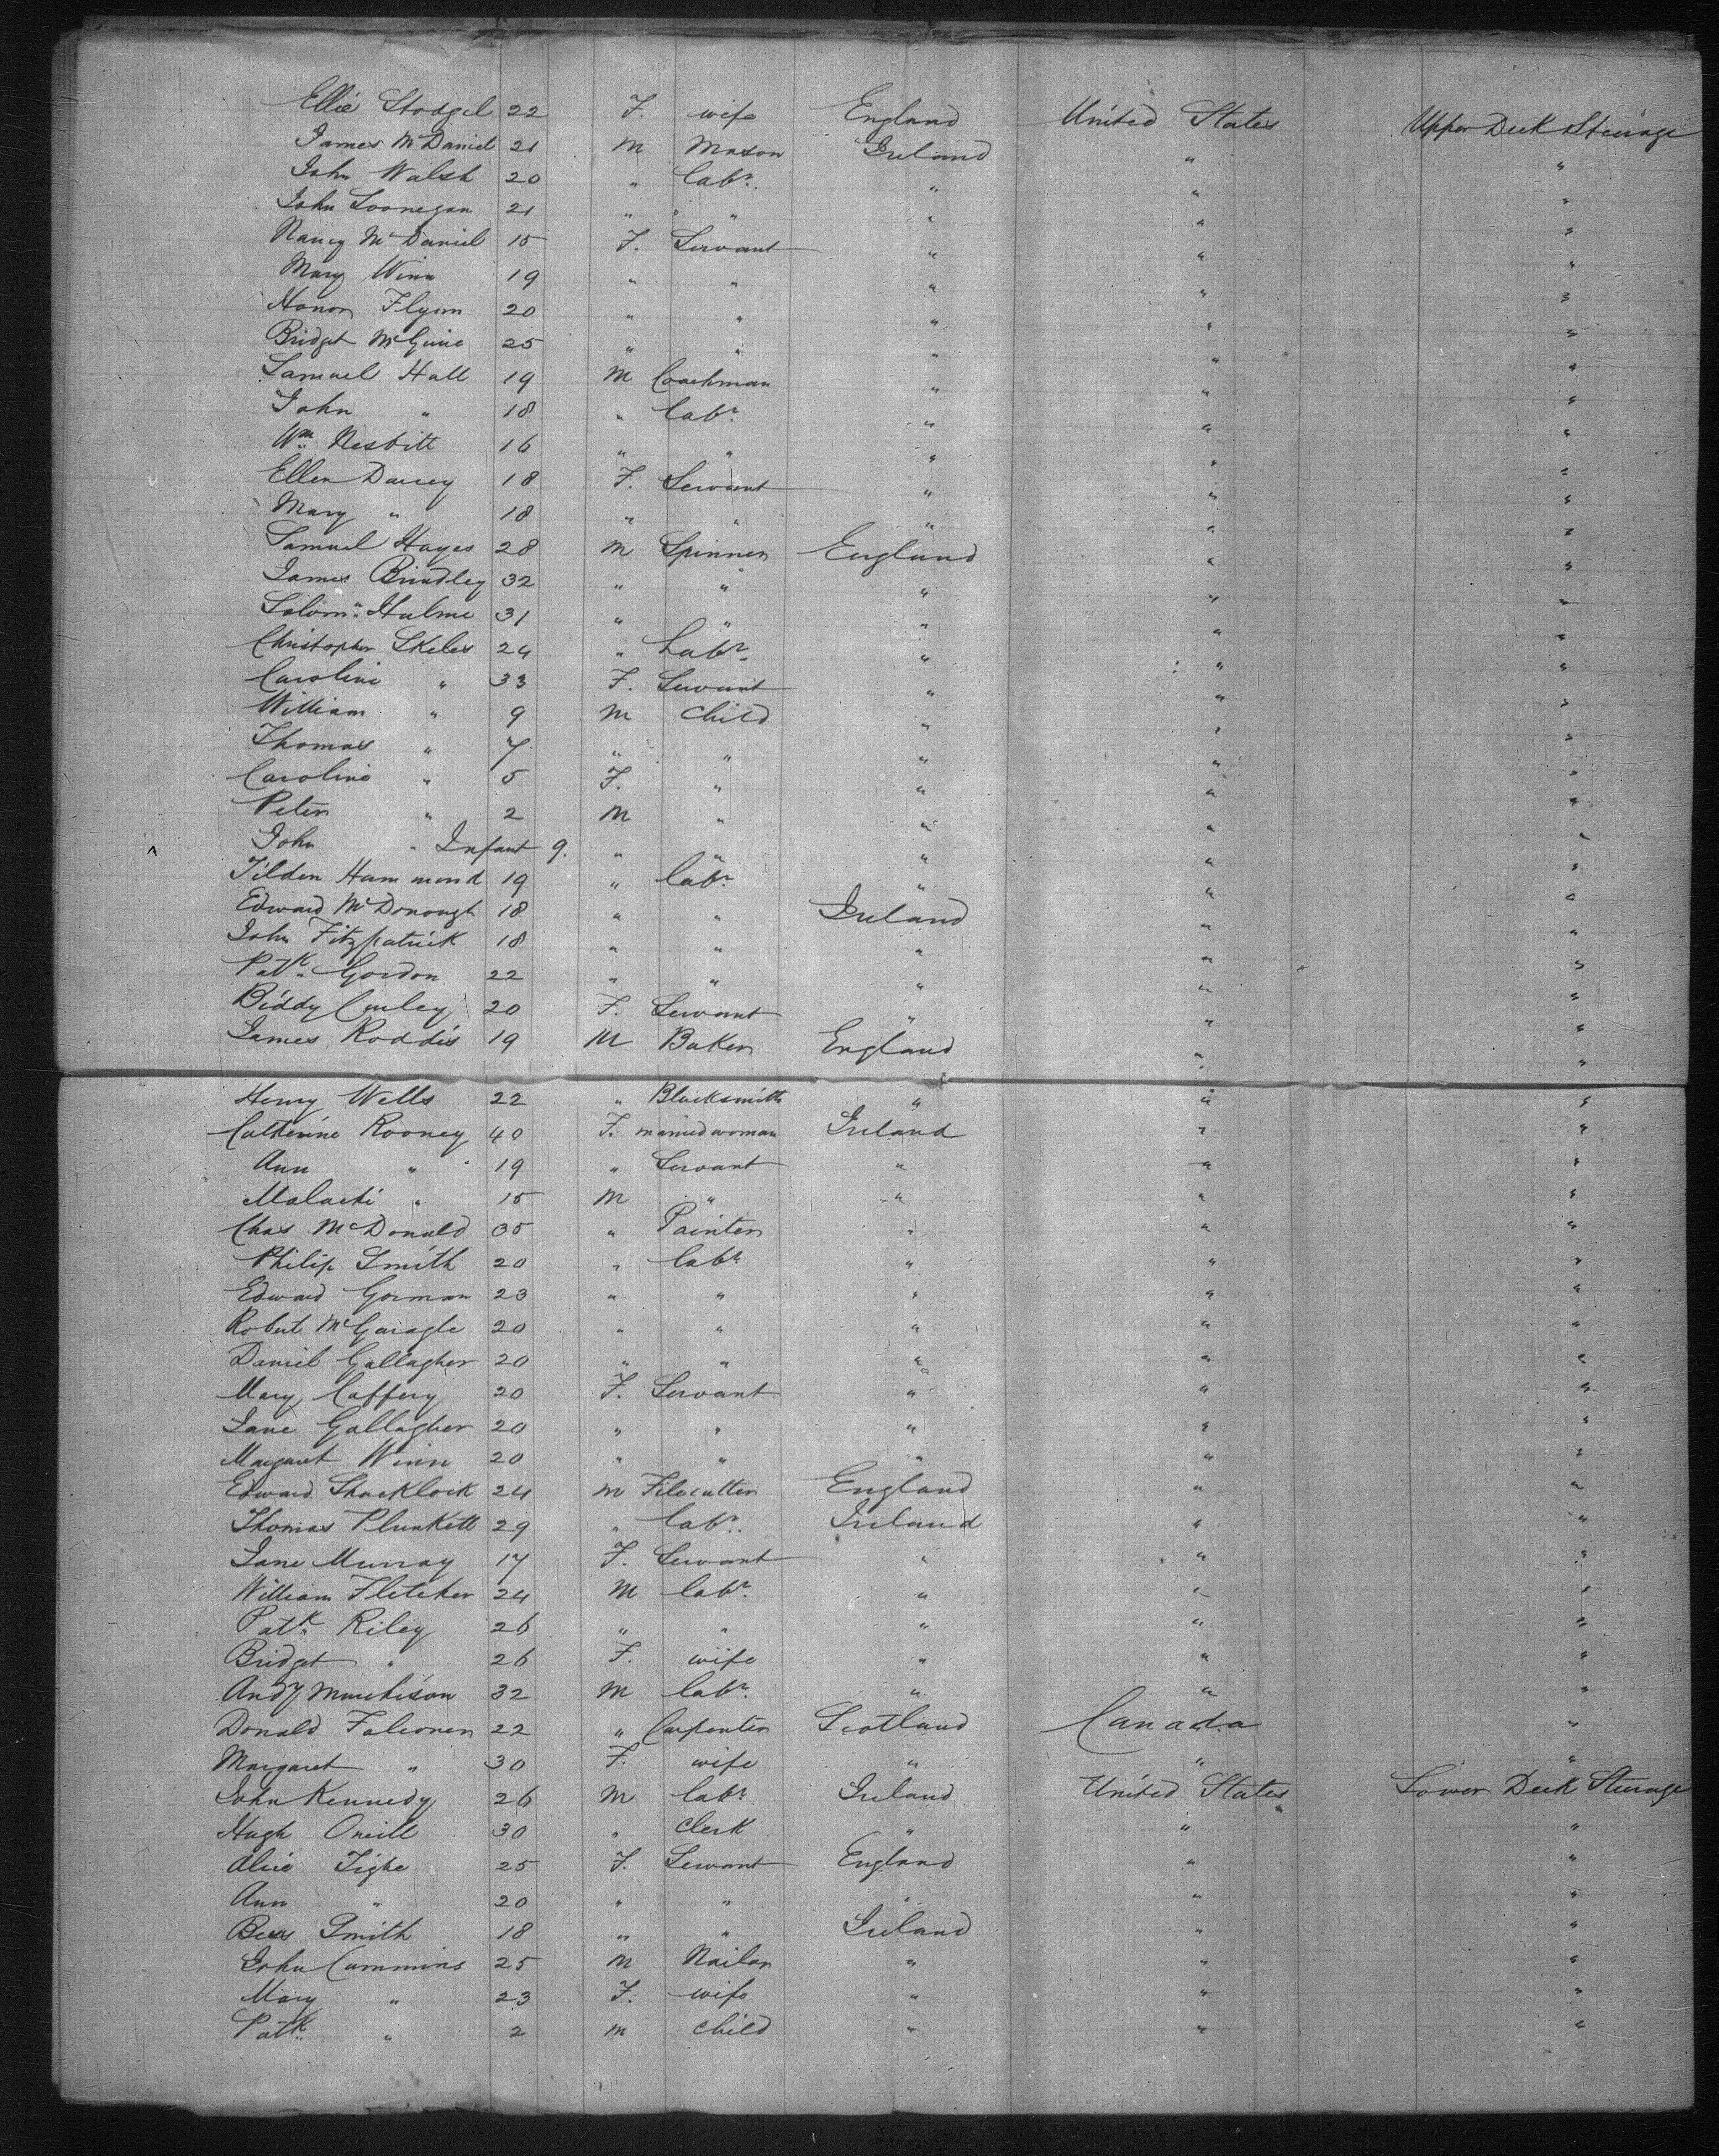 Ellie Stodgel 22 F. wife England United States Upper Deck Steerage
James McDaniel 21 M Mason Ireland " "
John Walsh 20 " Labr. " " "
John Loonegan 21 " " " " "
Nancy McDaniel 15 F. Servant " " "
Mary Winn 19 " " " " "
Honor Flynn 20 " " " " "
Bridget McGuire 25 " " " " "
Samuel Hall 19 M Coachman " " "
John " 18 " Labr. " " "
Wm. Nesbitt 16 " " " " "
Ellen Darcey 18 F. Servant " " "
Mary " 18 " " " " "
Samuel Hayes 28 M Spinner England " "
James Brindley 32 " " " " "
Solomn. Hulme 31 " " " " "
Christopher Skeles 24 " Labr. " " "
Caroline " 33 F. Servant " " "
William " 9 M Child " " "
Thomas " 7 " " " " "
Caroline " 5 F. " " " "
Peter " 2 M " " " "
John " Infant 9. " " " " "
Tilden Hammond 19 " Labr. " " "
Edward McDonough 18 " " Ireland " "
John Fitzpatrick 18 " " " " "
Patk. Gordon 22 " " " " "
Biddy Curley 20 F. Servant " " "
James Roddis 19 M Baker England " "
Henry Wells 22 " Blacksmith " " "
Catherine Rooney 40 F. married woman Ireland " "
Ann " 19 " Servant " " "
Malachi " 15 M " " " "
Chas McDonald 35 " Painter " " "
Philip Smith 20 " Labr. " " "
Edward Gorman 23 " " " " "
Robert McGaragle 20 " " " " "
Daniel Gallagher 20 " " " " "
Mary Caffery 20 F. Servant " " "
Jane Gallagher 20 " " " " "
Margaret Winn 20 " " " " "
Edward Shacklock 24 M Filecutter England " "
Thomas Plunkett 29 " Labr. Ireland " "
Jane Murray 17 F. Servant " " "
William Fletcher 24 M Labr. " " "
Patk. Riley 26 " " " " "
Bridget " 26 F. wife " " "
Andy Murchison 32 M Labr. " " "
Donald Falconer 22 " Carpenter Scotland Canada "
Margaret " 30 F. wife " " "
John Kennedy 26 M Labr. Ireland United States Lower Deck Steerage
Hugh Oneill 30 " Clerk " " "
Alice Tighe 25 F. Servant England " "
Ann " 20 " " " " "
Smith 18 " " Ireland " "
John Cummins 25 M Nailor " " "
Mary " 23 F. wife " " "
Patk. " 2 M Child " " "